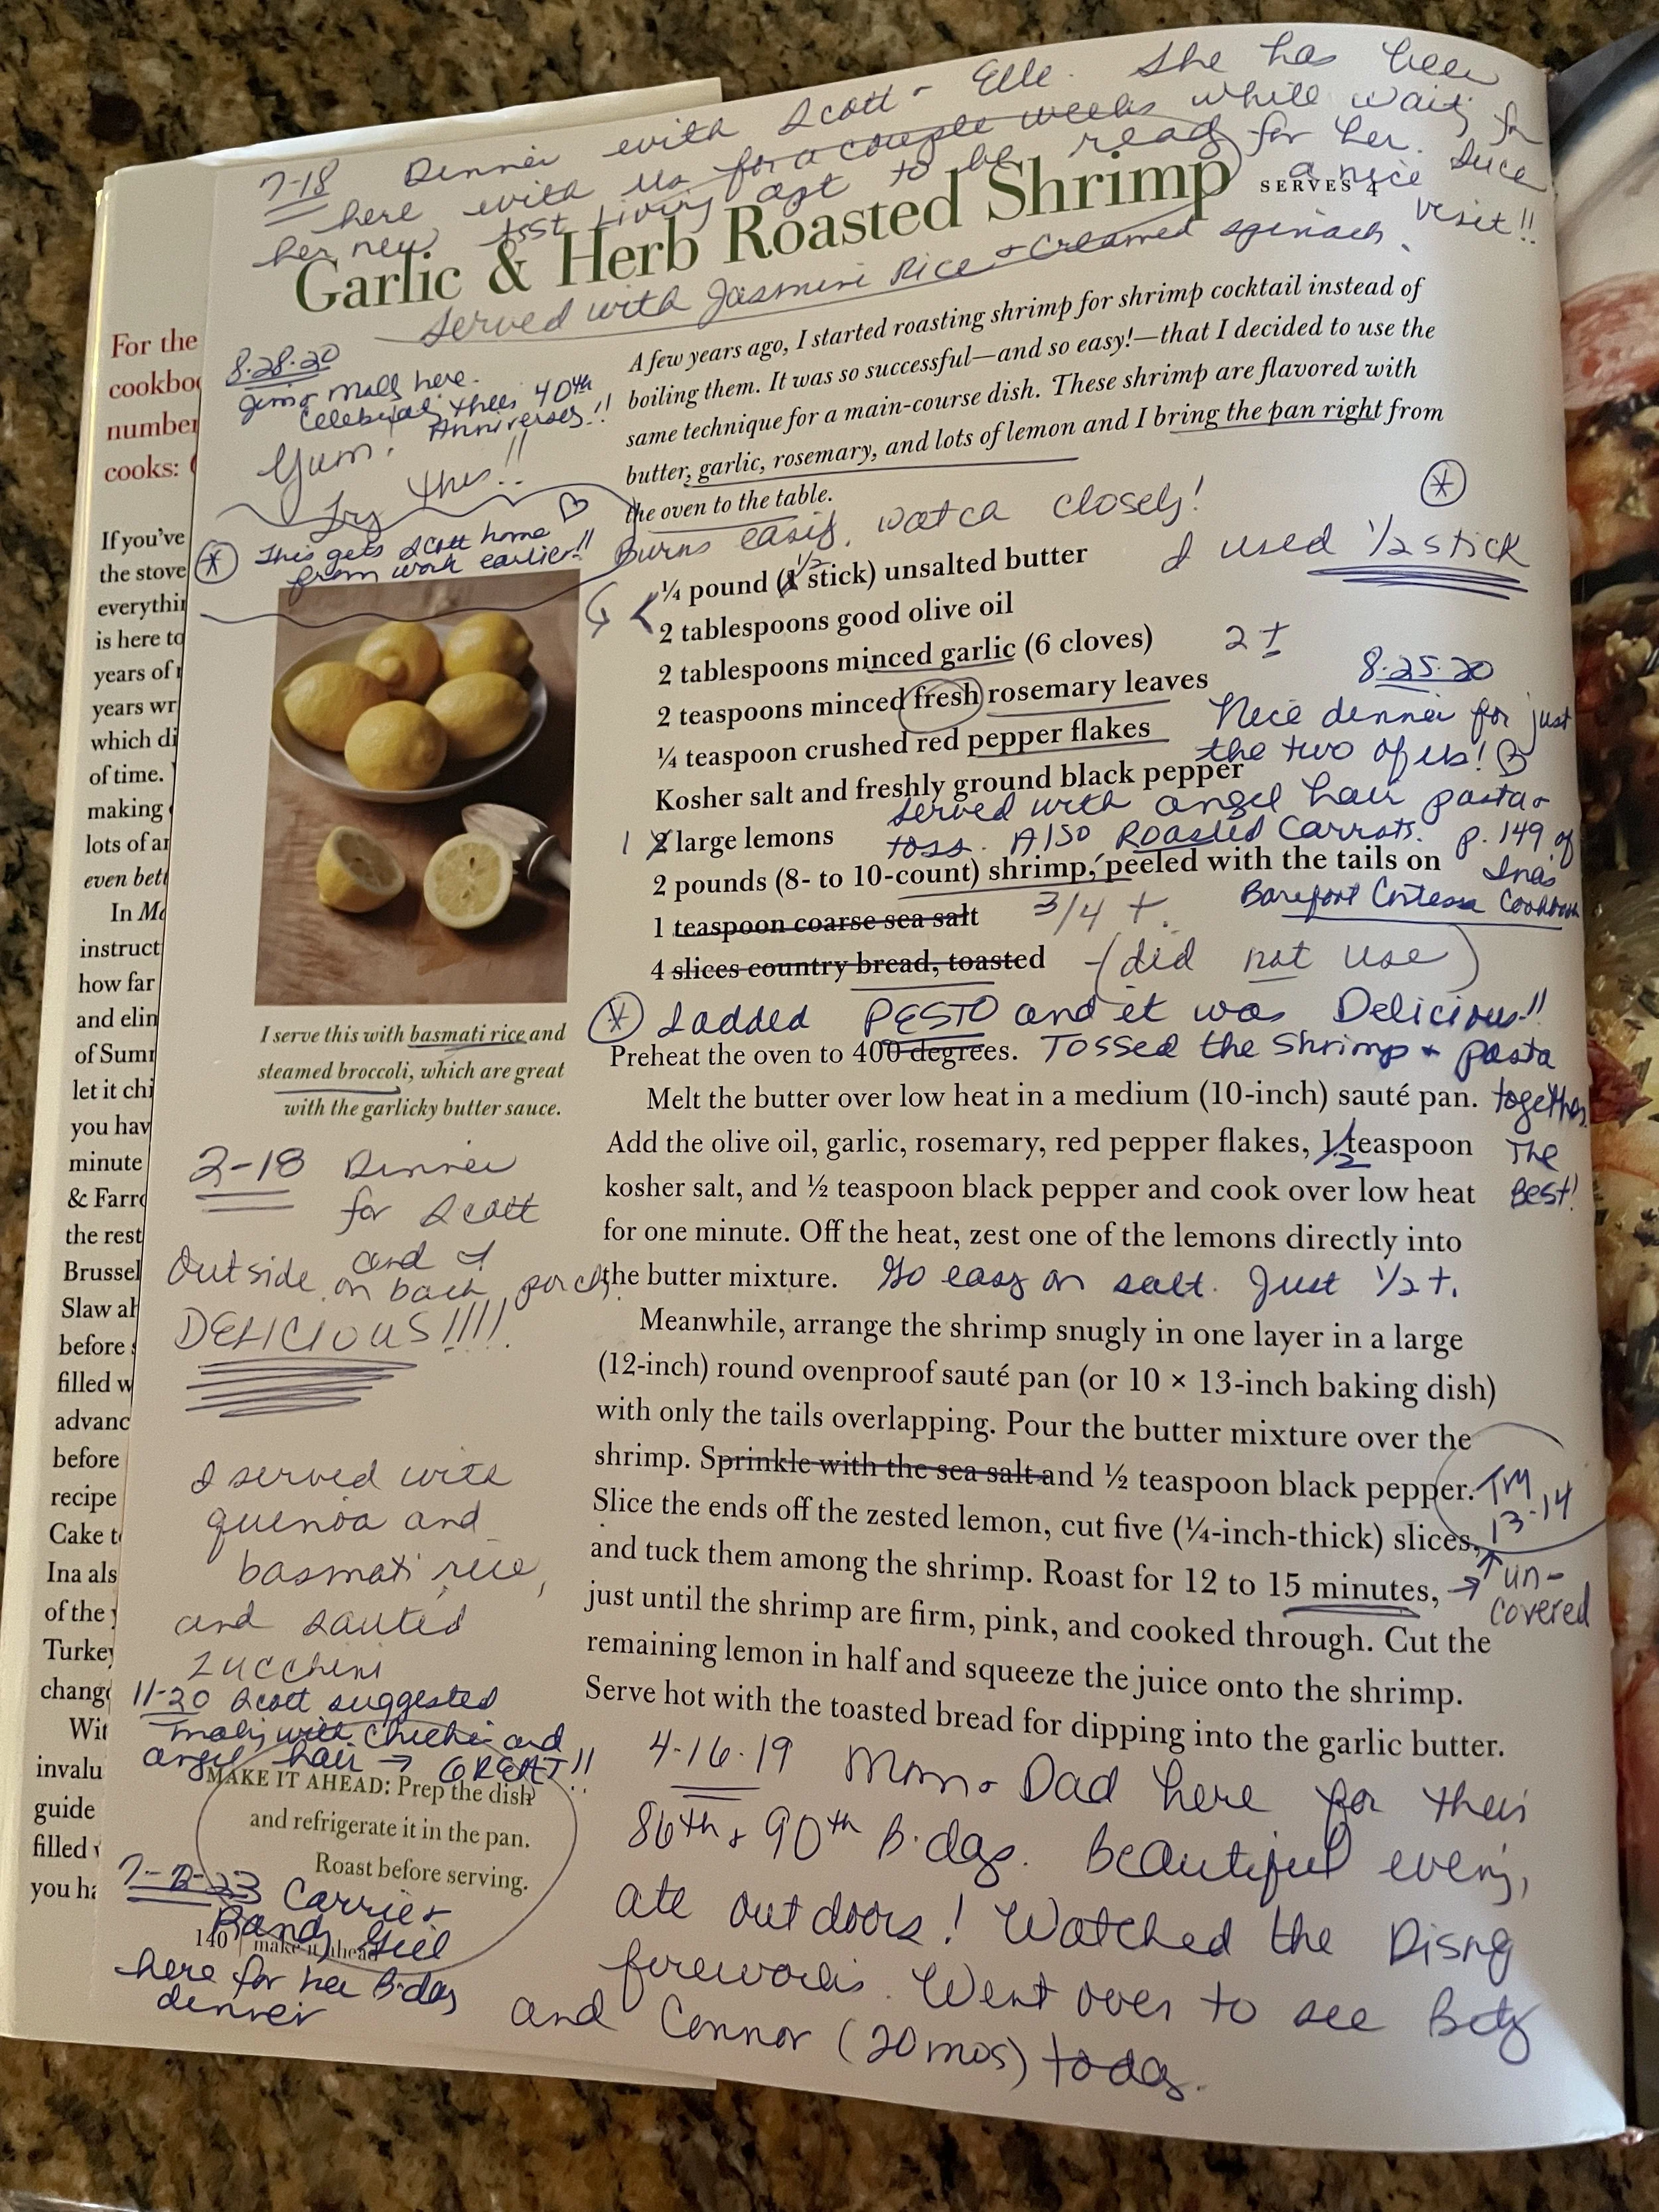 7-18 Dinner with Scott + Elle. She has been
here with us for a couple weeks while waiting for
her new asst living apt to be ready for her.
a nice visit!!
Garlic & Herb Roasted Shrimp SERVES 4
Served with Jasmine Rice + Creamed spinach.
A few years ago, I started roasting shrimp for shrimp cocktail instead of
boiling them. It was so successful—and so easy!—that I decided to use the
same technique for a main-course dish. These shrimp are flavored with
butter, garlic, rosemary, and lots of lemon and I bring the pan right from
the oven to the table.
8-28-20
Jim + Molly here.
Celebrating their 40th
Anniversary!!
Yum!
Try this!!
This gets Scott home
from work earlier!!
Burns easily, watch closely!
I used 1/2 stick
¼ pound (1 1/2 stick) unsalted butter
2 tablespoons good olive oil
2 tablespoons minced garlic (6 cloves)
2 t
2 teaspoons minced fresh rosemary leaves
¼ teaspoon crushed red pepper flakes
Kosher salt and freshly ground black pepper
1 2 large lemons
2 pounds (8- to 10-count) shrimp, peeled with the tails on
1 teaspoon coarse sea salt 3/4 t.
4 slices country bread, toasted - (did not use)
8-25-20
Nice dinner for just
the two of us!
Served with angel hair pasta +
toss. Also Roasted Carrots. p. 149 of
Ina's
Barefoot Contessa Cookbook
I added PESTO and it was Delicious!!
Tossed the Shrimp + pasta
together.
The
Best!
Preheat the oven to 400 degrees.
Melt the butter over low heat in a medium (10-inch) sauté pan.
Add the olive oil, garlic, rosemary, red pepper flakes, 1 1/2 teaspoon
kosher salt, and ½ teaspoon black pepper and cook over low heat
for one minute. Off the heat, zest one of the lemons directly into
the butter mixture. Go easy on salt. Just 1/2 t.
Meanwhile, arrange the shrimp snugly in one layer in a large
(12-inch) round ovenproof sauté pan (or 10 × 13-inch baking dish)
with only the tails overlapping. Pour the butter mixture over the
shrimp. Sprinkle with the sea salt and ½ teaspoon black pepper.
Slice the ends off the zested lemon, cut five (¼-inch-thick) slices,
and tuck them among the shrimp. Roast for 12 to 15 minutes,
just until the shrimp are firm, pink, and cooked through. Cut the
remaining lemon in half and squeeze the juice onto the shrimp.
Serve hot with the toasted bread for dipping into the garlic butter.
Try
13-14
un-
covered
I serve this with basmati rice and
steamed broccoli, which are great
with the garlicky butter sauce.
2-18 Dinner
for Scott
and I
Outside on back porch.
DELICIOUS!!!!
I served with
quinoa and
basmati rice,
and sauted
zucchini
11-20 Scott suggested
making with Chicken and
angel hair → GREAT!!
MAKE IT AHEAD: Prep the dish
and refrigerate it in the pan.
Roast before serving.
Carrie +
Randy
here for her B-day
dinner
140 | make it ahead
4-16-19 Mom + Dad here for their
86th + 90th B-days. Beautiful evening,
ate outdoors! Watched the Disney
fireworks. Went over to see Betsy
and Connor (20 mos) today.
For the
cookboo
number
cooks: (
If you've
the stove
everythin
is here to
years of r
years wr
which di
of time.
making
lots of ar
even bett
In Ma
instruct
how far
and elin
of Sumr
let it chi
you hav
minute
& Farro
the rest
Brussel
Slaw ah
before s
filled w
advanc
before
recipe
Cake to
Ina als
of the y
Turkey
change
Wit
invalu
guide
filled v
you ha